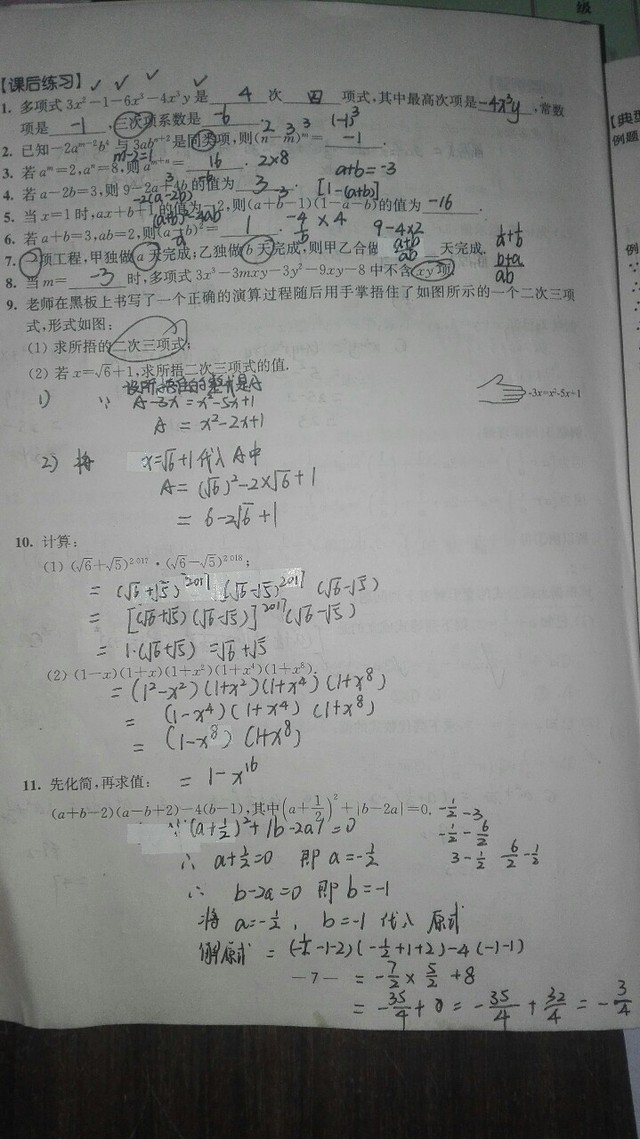 【课后练习】✓ ✓ ✓ ✓
1. 多项式 3x²-1-6x³-4x³y 是 4 次 四 项式,其中最高次项是 -4x³y ,常数
项是 -1 ,三次项系数是 -6 .
2. 已知-2aᵐ⁻²b⁴ 与 3abⁿ⁺² 是同类项,则(n-m)ᵐ = -1 .
m-2=1
3. 若 aᵐ=2,aⁿ=8,则 aᵐ⁺ⁿ= 16 . 2×8
a+b=-3
4. 若 a-2b=3,则 9-2a+4b 的值为 3 .
-2(a-2b)
[1-(a+b)]
5. 当 x=1 时,ax+b+1 的值为-2,则(a+b-1)(1-a-b)的值为 -16 .
-4 × 4
6. 若 a+b=3,ab=2,则(a-b)²= 1 .
9-4×2
7. 一项工程,甲独做 a 天完成,乙独做 b 天完成,则甲乙合做 天完成.
8. 当 m= -3 时,多项式 3x³-3mxy-3y²-9xy-8 中不含 xy 项.
9. 老师在黑板上书写了一个正确的演算过程随后用手掌捂住了如图所示的一个二次三项
式,形式如图:
(1) 求所捂的二次三项式;
(2) 若 x=√6+1,求所捂二次三项式的值.
-3x=x²-5x+1
1) 设所捂住的整式是A
∵ A-3x=x²-5x+1
A = x²-2x+1
2) 将 x=√6+1代入A中
A=(√6)²-2×√6+1
= 6-2√6+1
10. 计算:
(1) (√6+√5)²⁰¹⁷·(√6-√5)²⁰¹⁸;
= (√6+√5)²⁰¹⁷ (√6-√5)²⁰¹⁷ (√6-√5)
= [(√6+√5)(√6-√5)]²⁰¹⁷(√6-√5)
= 1·(√6+√5) =√6+√5
(2) (1-x)(1+x)(1+x²)(1+x⁴)(1+x⁸).
= (1²-x²)(1+x²)(1+x⁴)(1+x⁸)
= (1-x⁴)(1+x⁴)(1+x⁸)
= (1-x⁸)(1+x⁸)
= 1-x¹⁶
11. 先化简,再求值:
(a+b-2)(a-b+2)-4(b-1),其中(a+1/2)²+|b-2a|=0.
-1/2-3
-1/2-6/2
3-1/2 6/2-1/2
∵(a+1/2)²+|b-2a|=0
∴ a+1/2=0 即 a=-1/2
∴ b-2a=0 即 b=-1
将 a=-1/2, b=-1 代入 原式
解原式 = (-1/2-1-2)(-1/2+1+2)-4(-1-1)
= -7/2 × 5/2 +8
= -35/4+8 = -35/4 + 32/4 = -3/4
— 7 —